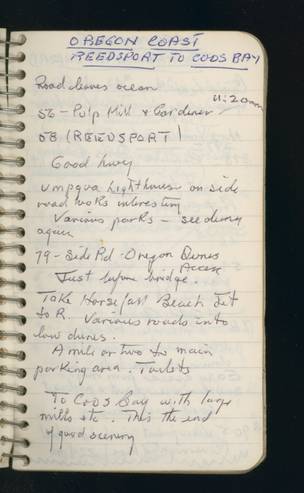 OREGON COAST
REEDSPORT TO COOS BAY
Road leaves ocean
11:20am
56 - Pulp Mill & Gardiner
58 (REEDSPORT)
Good hwy
Umpqua Lighthouse on side
road looks interesting
Various parks - see dunes
again
79 - Side Rd - Oregon Dunes
Access
Just before bridge.
Take Horsfall Beach Exit
to R. Various roads into
low dunes.
A mile or two to main
parking area. Toilets
To Coos Bay with large
mills etc. This the end
of good scenery